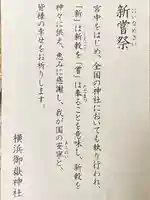 にいなめさい
新嘗祭
宮中をはじめ、全国の神社においても執り行われ、
「新」は新穀を「嘗」は奉ることを意味し、新穀を
神々に供え、恵みに感謝し、我が国の安寧と、
皆様の幸せをお祈りします。
横浜御嶽神社